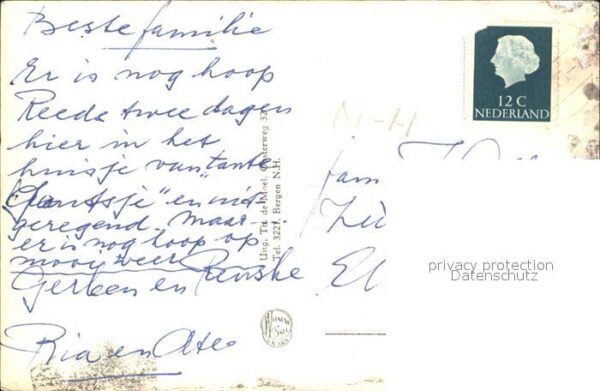 Beste familie
Er is nog hoop
Reeds twee dagen
hier in het
huisje van "tante
Jantsje" en niet
geregend, maar
er is nog hoop op
mooi weer
Gerben en Renske
Ria en Ate
Uitg. Th. de Moel, Oosterweg
Tel. 3221, Bergen N.H.
12 C
NEDERLAND
N-H
fam
privacy protection
Datenschutz